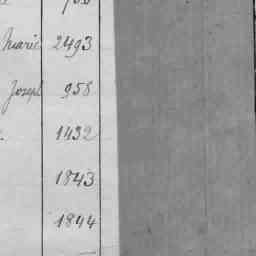 Marie 2493
Joseph 958
1432
1843
1844